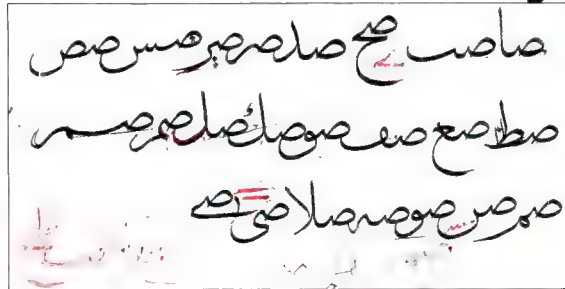 صا صب صح صد صر صر صس صص
صط صع صف صو صك صل صم صم
صم صن صو صه صلا صى صے